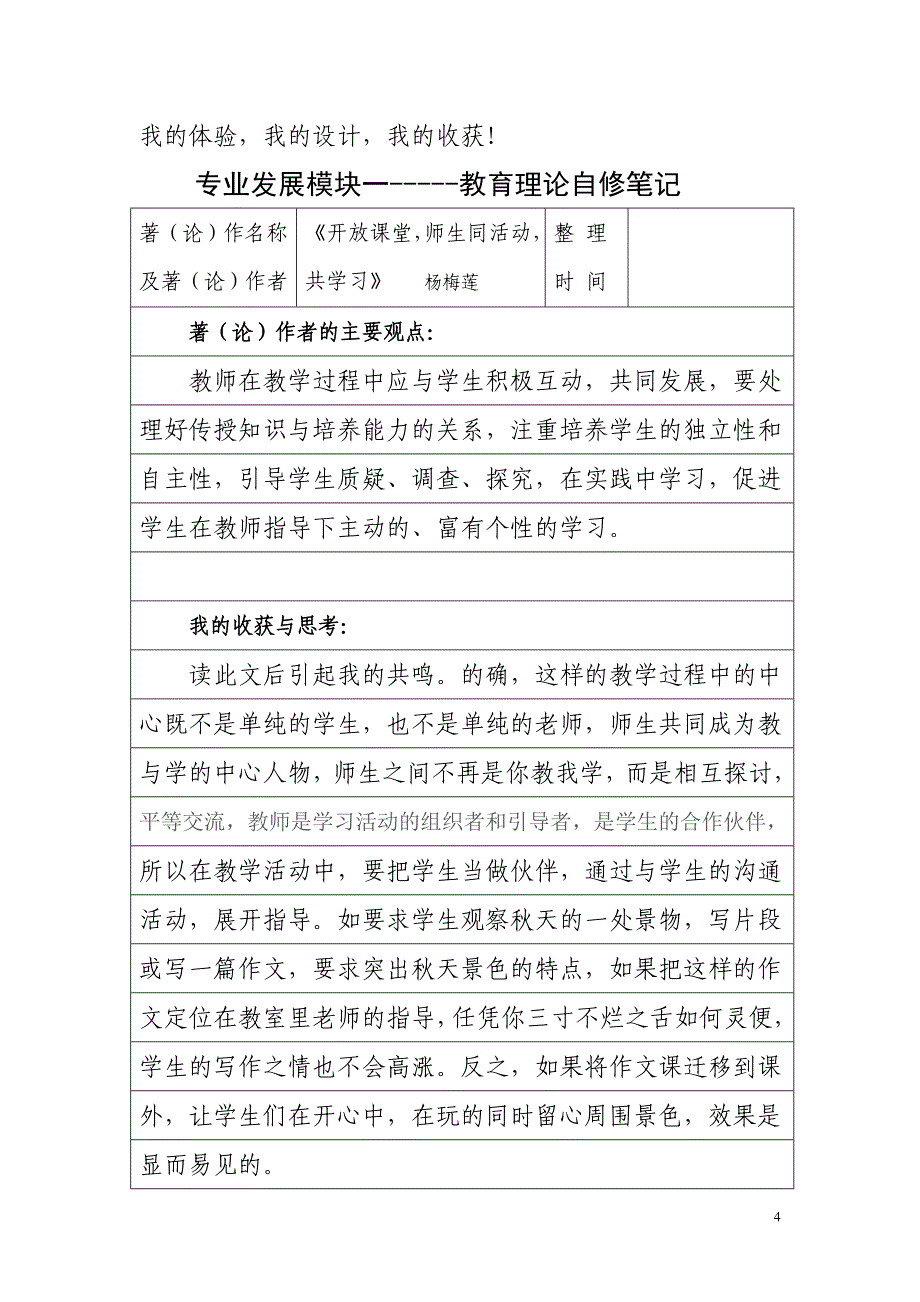 我的体验，我的设计，我的收获！
专业发展模块一-----教育理论自修笔记
著（论）作名称
及著（论）作者
《开放课堂，师生同活动，
共学习》 杨梅莲
整 理
时 间
著（论）作者的主要观点：
教师在教学过程中应与学生积极互动，共同发展，要处
理好传授知识与培养能力的关系，注重培养学生的独立性和
自主性，引导学生质疑、调查、探究，在实践中学习，促进
学生在教师指导下主动的、富有个性的学习。
我的收获与思考：
读此文后引起我的共鸣。的确，这样的教学过程中的中
心既不是单纯的学生，也不是单纯的老师，师生共同成为教
与学的中心人物，师生之间不再是你教我学，而是相互探讨，
平等交流，教师是学习活动的组织者和引导者，是学生的合作伙伴，
所以在教学活动中，要把学生当做伙伴，通过与学生的沟通
活动，展开指导。如要求学生观察秋天的一处景物，写片段
或写一篇作文，要求突出秋天景色的特点，如果把这样的作
文定位在教室里老师的指导，任凭你三寸不烂之舌如何灵便，
学生的写作之情也不会高涨。反之，如果将作文课迁移到课
外，让学生们在开心中，在玩的同时留心周围景色，效果是
显而易见的。
4